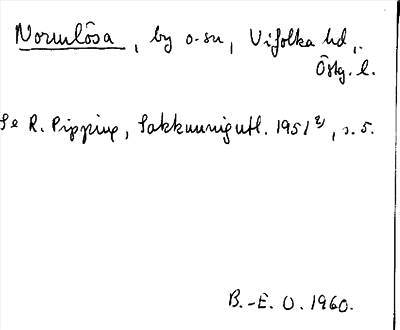 Normlösa, by o. sn, Vifolka hd,
Östg. l.
Se R. Pipping, Sakkunnigutl. 1951 2), s. 5.
B.-E. O. 1960.